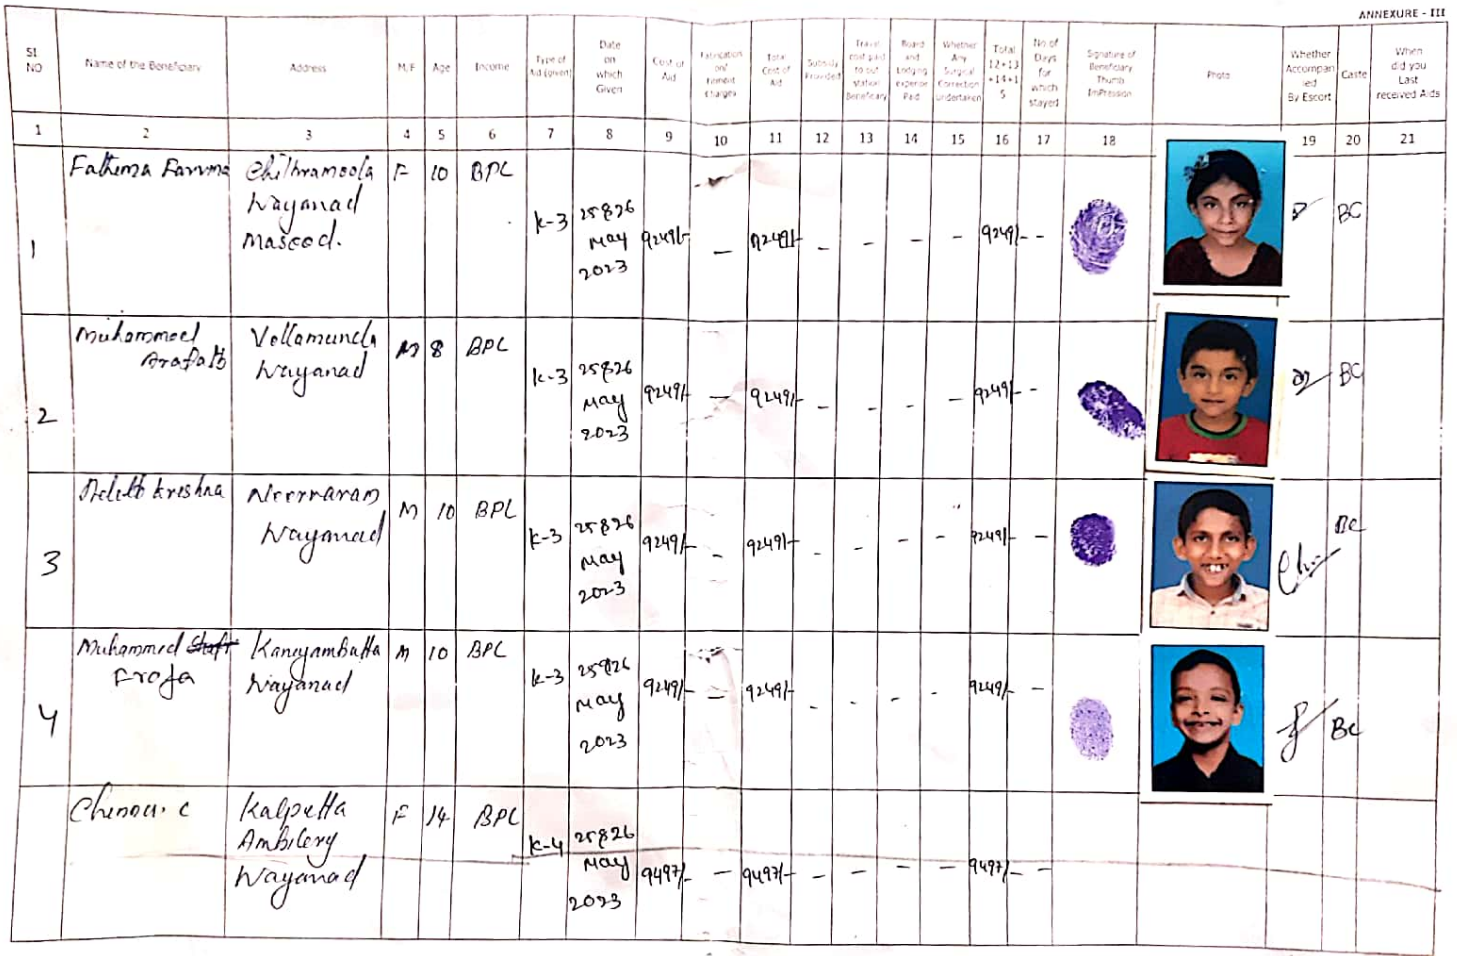 ANNEXURE - III
Sl NO
Name of the Beneficiary
Address
M/F
Age
Income
Type of Aid (given)
Date on which Given
Cost of Aid
Fabrication on/ Fitment Charges
Total Cost of Aid
Subsidy Provided
Travel cost paid to out station Beneficiary
Board and Lodging expense Paid
Whether Any Surgical Correction Undertaken
Total 12+13 +14+1 5
No of Days for which stayed
Signature of Beneficiary Thumb ImPression
Photo
Whether Accompan ied By Escort
Caste
When did you Last received Aids
1 2 3 4 5 6 7 8 9 10 11 12 13 14 15 16 17 18 19 20 21
1
Fathima
Wayanad
F 10 BPL
K-3
25&26 May 2023
9249/- — 9249/- - - - - 9249/- -
BC
2
Muhammed Arafath
Vellamunda
Wayanad
M 8 BPL
K-3
25&26 May 2023
9249/- — 9249/- - - - - 9249/- -
BC
3
Krishna
Wayanad
M 10 BPL
K-3
25&26 May 2023
9249/- - 9249/- - - - - 9249/- -
BC
4
Muhammed
Kaniyambatta
Wayanad
M 10 BPL
K-3
25&26 May 2023
9249/- — 9249/- - - - - 9249/- -
BC
Kalpetta
Ambilery
Wayanad
F 14 BPL
K-4
25&26 May 2023
9497/- — 9497/- - - - - 9497/- -